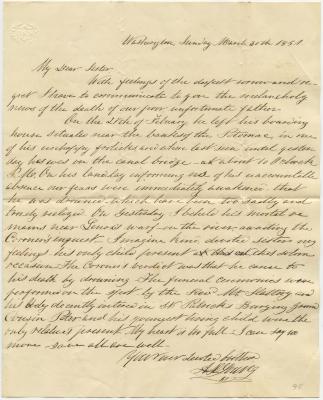 Washington, Sunday March 30th 1851
My Dear Sister
With feelings of the deepest sorrow and re-
gret I have to communicate to you the melancholy
news of the death of our poor unfortunate father.
On the of Febuary he left his boarding
house situated near the banks of the Potomac, in one
of his unhappy and when last seen until yester-
day he was on the canal bridge - at about 10 O'Clock
P.M. On his landlady informing me of his unaccountable
absence our fears were immediately awakened that
he was drowned - which have been too sadly and
truly realized. On yesterday I beheld his mortal re-
mains near wharf on the river, awaiting the
Coroner's inquest. Imagine kind, devoted sister my
feelings his only child present at this sad, this solemn
occasion. The Coroner's verdict was that he came to
his death by drowning. The funeral ceremonies were
performed on the spot by the Revd. Mr. and
his body decently interred in St Patrick's Burying Ground
Cousin Peter and his youngest living child were the
only relatives present. My heart is too full - I can say no
more - save all are well.
Your ever devoted brother